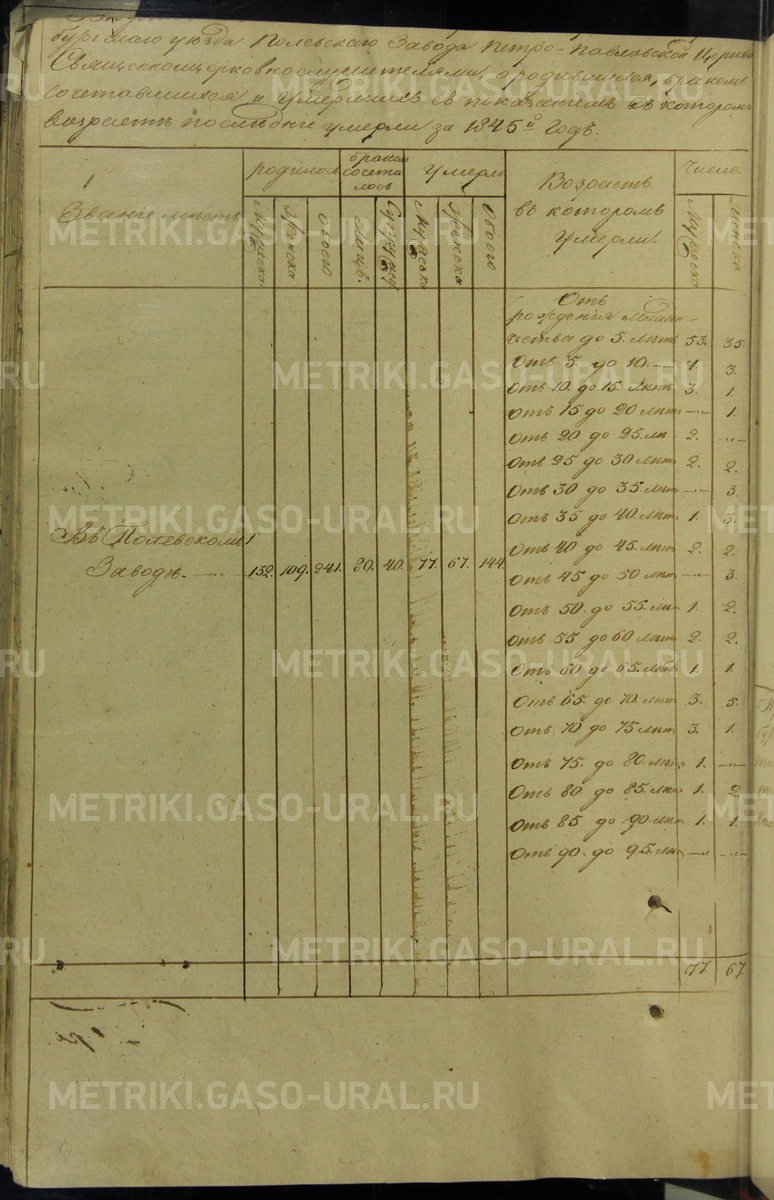 бургскаго уѣзда Полевскаго Завода Петро-Павловской Церкви
Священноцерковнослужителями, о родившихся, бракомъ
сочетавшихся и умершихъ съ показаніемъ въ которомъ
возрастѣ послѣдніе умерли за 1845й Годъ.
Званіе мѣстъ
родилось
бракомъ сочеталось
умерло
Возрастъ въ которомъ умерли.
Число
Мужеска
Женска
обоего
Супруж
Мужеска
Женска
Обоего
Мужеска
Женска
Отъ
рожденія
до 5. лѣтъ 53. 35.
Отъ 5. до 10. — 1. 3.
Отъ 10. до 15. лѣтъ 3. 1.
Отъ 15 до 20 лѣтъ — 1.
Отъ 20 до 25. лѣ. 2. —
Отъ 25 до 30 лѣтъ 2. 2.
Отъ 30 до 35. лѣтъ — 3.
Отъ 35 до 40 лѣтъ 1. 3.
Въ Полевскомъ
Заводѣ. — 132. 109. 241. 20. 40. 77. 67. 144.
Отъ 40 до 45. лѣтъ 2. 2.
Отъ 45 до 50 лѣтъ — 3.
Отъ 50. до 55. лѣ 1. 2.
Отъ 55 до 60 лѣтъ 2. 2.
Отъ 60 до 65. лѣтъ 1. 1.
Отъ 65. до 70. лѣт 3. 5.
Отъ 70 до 75 лѣт 3. 1.
Отъ 75. до 80. лѣтъ 1. —
Отъ 80. до 85. лѣт 1. 2.
Отъ 85 до 90. лѣт 1. 1.
Отъ 90. до 95. лѣт — —
77. 67.
METRIKI.GASO-URAL.RU